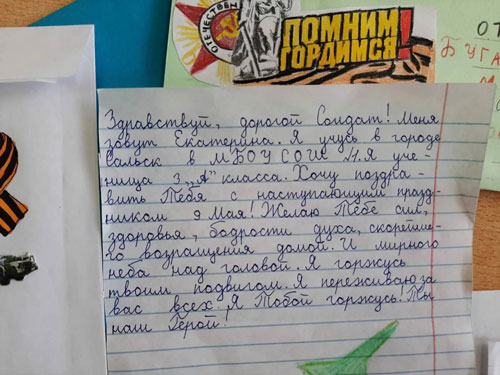 ОТЕЧЕСТВЕН
ПОМНИМ
ГОРДИМСЯ!
ОТ
БУГА
Здравствуй, дорогой Солдат! Меня
зовут Екатерина. Я учусь в городе
Сальск в МБОУ СОШ №1. Я уче-
ница 3 „А" класса. Хочу поздра-
вить Тебя с наступающим празд-
ником 9 Мая! Желаю Тебе сил,
здоровья, бодрости духа, скорейше-
го возращения домой. И мирного
неба над головой. Я горжусь
твоим подвигом. Я переживаю за
вас всех. Я Тобой горжусь! Ты
наш Герой!